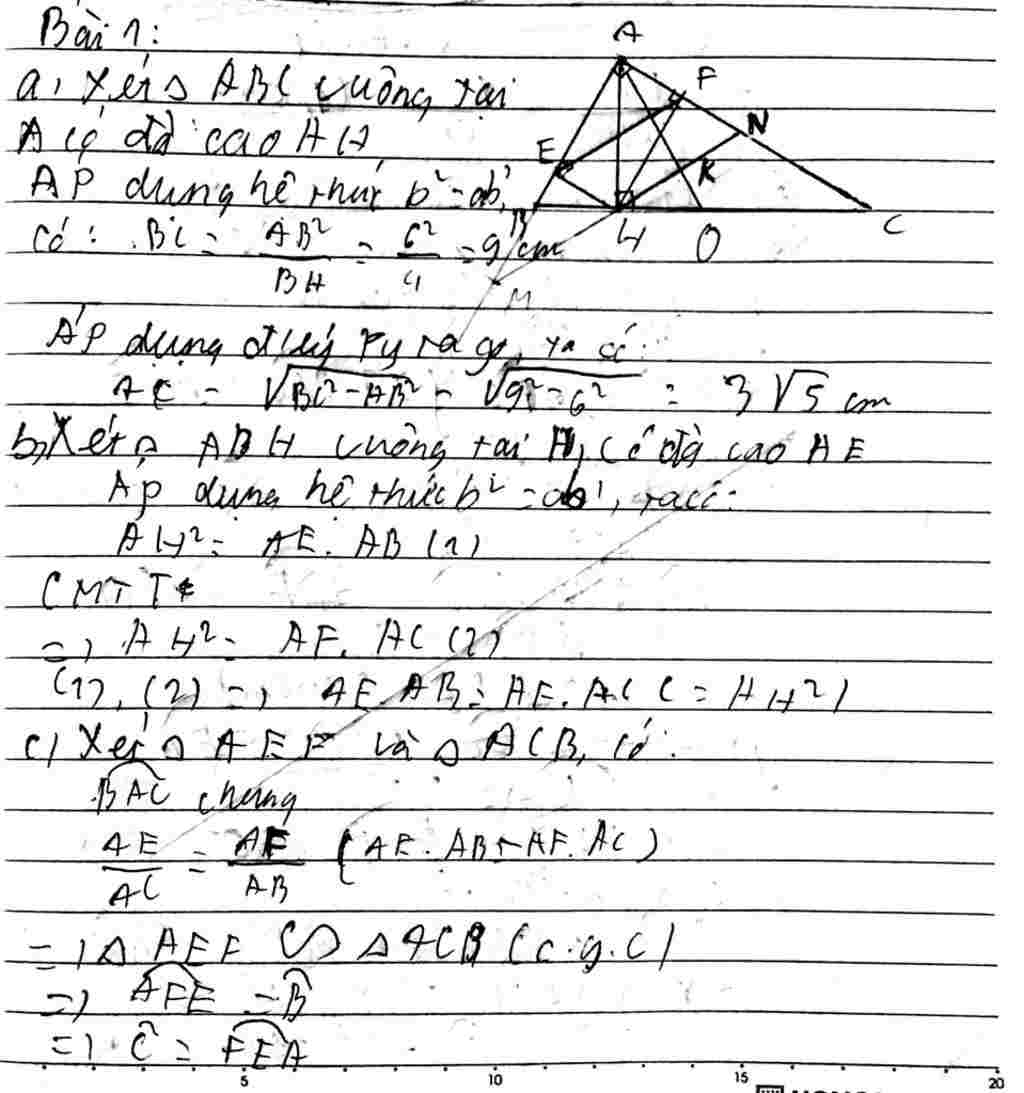 Bài 1:
a, Xét Δ ABC vuông tại
A có đg cao AH
Áp dụng hệ thức b² = ab',
có: BC = AB²/BH = 6²/4 = 9 cm
Áp dụng đ lý Pytago, ta có:
AC = √BC² - AB² = √9² - 6² = 3√5 cm
b, Xét Δ ABH vuông tại H, có đg cao HE
Áp dụng hệ thức b² = ab', ta có:
AH² = AE. AB (1)
CMTT
=) AH² = AF. AC (2)
(1), (2) =) AE.AB = AF.AC (= AH²)
c) Xét Δ AEF và Δ ACB, có:
BAC chung
AE/AC = AF/AB (AE. AB = AF. AC)
=) Δ AEF ∽ Δ ACB (c.g.c)
=) AFE = B
=) C = FEA
A
F
N
E
K
B
H
O
C
M
5 10 15 20